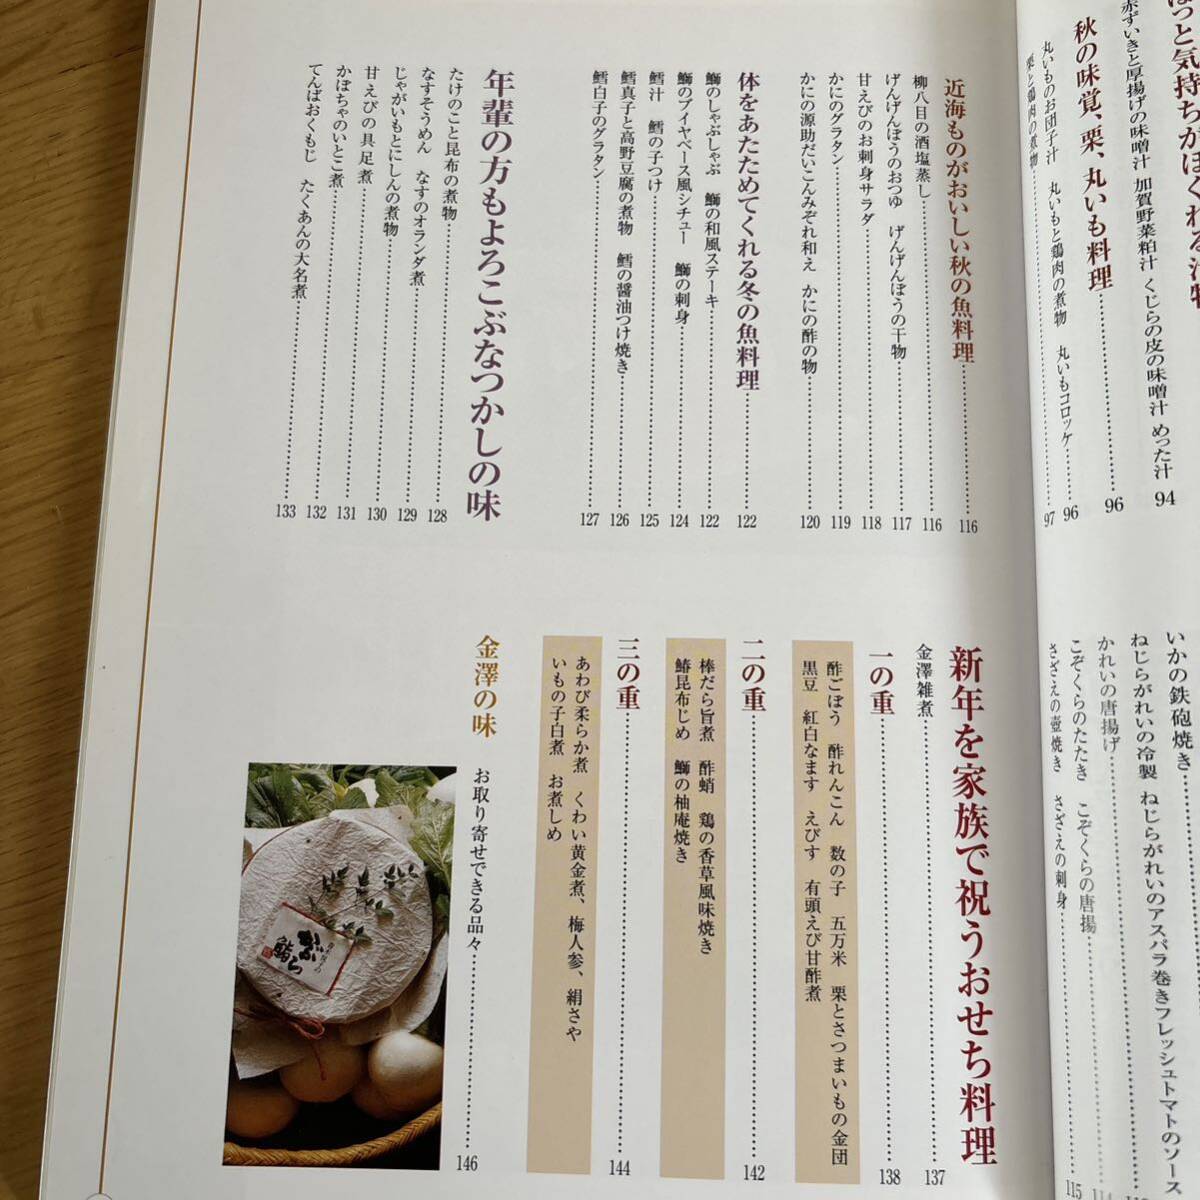 ほっと気持ちがほぐれる汁物
赤ずいきと厚揚げの味噌汁 加賀野菜粕汁 くじらの皮の味噌汁 めった汁 94
秋の味覚、栗、丸いも料理 96
丸いものお団子汁 丸いもと鶏肉の煮物 丸いもコロッケ 96
栗と鶏肉の煮物 97
いかの鉄砲焼き
ねじらがれいの冷製 ねじらがれいのアスパラ巻きフレッシュトマトのソース
かれいの唐揚げ 114
こぞくらのたたき こぞくらの唐揚 115
さざえの壺焼き さざえの刺身
近海ものがおいしい秋の魚料理 116
柳八目の酒塩蒸し 116
げんげんぼうのおつゆ げんげんぼうの干物 117
甘えびのお刺身サラダ 118
かにのグラタン 119
かにの源助だいこんみぞれ和え かにの酢の物 120
体をあたためてくれる冬の魚料理 122
鰤のしゃぶしゃぶ 鰤の和風ステーキ 122
鰤のブイヤベース風シチュー 鰤の刺身 124
鱈汁 鱈の子つけ 125
鱈真子と高野豆腐の煮物 鱈の醤油つけ焼き 126
鱈白子のグラタン 127
年輩の方もよろこぶなつかしの味
たけのこと昆布の煮物 128
なすそうめん なすのオランダ煮 129
じゃがいもとにしんの煮物 130
甘えびの具足煮 131
かぼちゃのいとこ煮 132
てんばおくもじ たくあんの大名煮 133
新年を家族で祝うおせち料理
金澤雑煮 137
一の重 138
酢ごぼう 酢れんこん 数の子 五万米 栗とさつまいもの金団
黒豆 紅白なます えびす 有頭えび甘酢煮
二の重 142
棒だら旨煮 酢蛸 鶏の香草風味焼き
鰆昆布じめ 鰤の柚庵焼き
三の重 144
あわび柔らか煮 くわい黄金煮、梅人参、絹さや
いもの子白煮 お煮しめ
金澤の味
お取り寄せできる品々 146
かぶら鮨